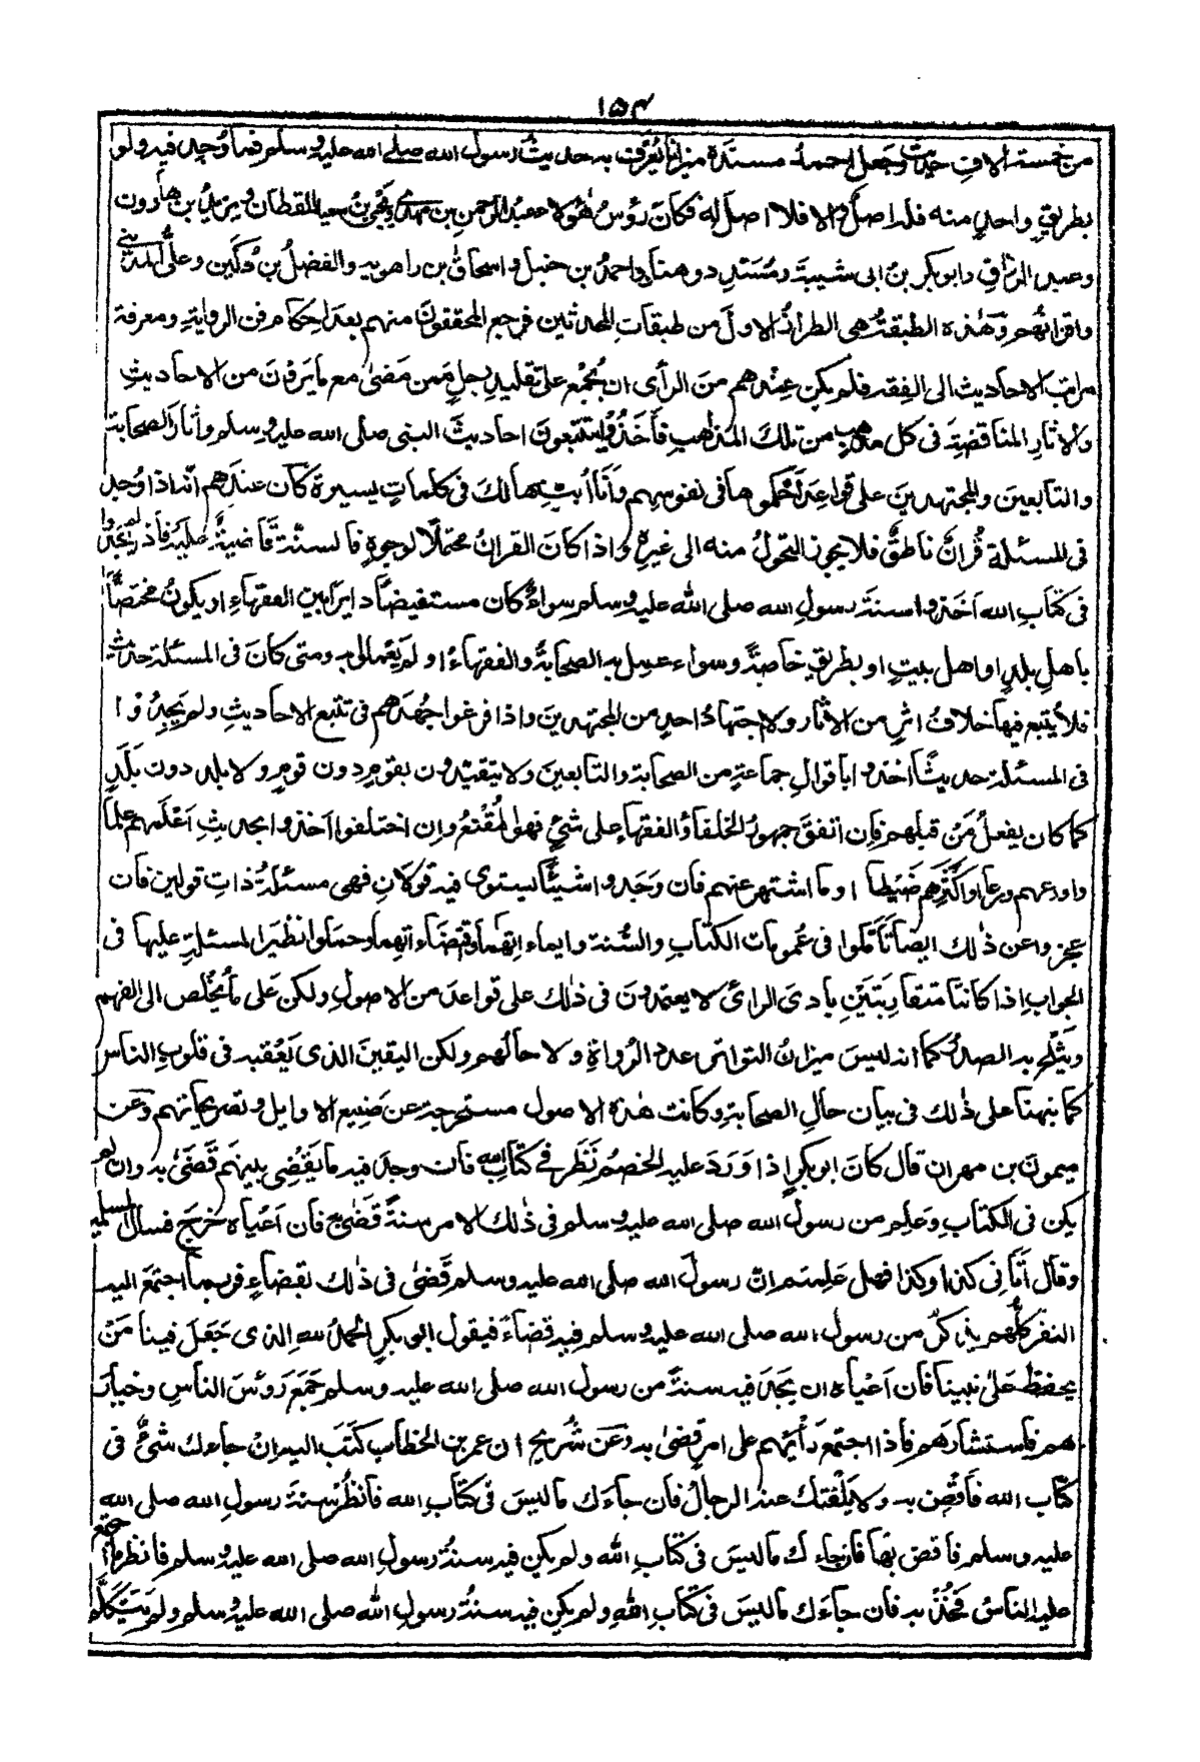 ١٥٤
من خمسة الافِ حديث وجَعل احمدُ مسندَه ميزانا يُعْرَف به حديثُ رسول الله صلى الله عليه وسلم فما وُجِد فيه ولو
بطريقٍ واحدٍ منه فله اصلٌ والا فلا اصلَ له فكانَ رؤسُ هٰؤلاء عبدُ الرحمن بن مهدي ويحيٰى بنُ سعيد القطان ويزيدُ بن هارون
وعبد الرزاقِ وابو بكر بنُ ابى شيبةَ ومُسَدَّد وهنادٌ واحمدُ بن حنبل واسحاقُ بن راهويه والفضلُ بن دُكَين وعلىُّ المدينى
واقرانُهم وهٰذه الطبقةُ هى الطرازُ الاولُ من طبقاتِ المحدثين فرجع المحققونَ منهم بعدَ اِحكام فن الروايةِ ومعرفة
مراتب الاحاديث الى الفِقه فلم يكن عِنْدهم منَ الرأى ان يُجْمع على تقليدِ رجلٍ ممن مَضىٰ مع ما يَرَوْنَ من الاحاديثِ
والاثارِ المناقضةِ فى كل مذهبٍ من تلكَ المذاهبِ فأَخَذُوْا يتتبّعونَ احاديثَ النبى صلى الله عليه وسلم واٰثارَ الصحابة
والتابعينَ والمجتهدينَ على قواعدَ اَحْكَموها فى نفوسِهم وَاَنا اُبيّنها لكَ فى كلماتٍ يسيرة كان عندَهم انّه اذا وُجدَ
فى المسئلة قُرانٌ ناطقٌ فلا يجوز التحولُ منه الى غيرهِ واذا كانَ القرانُ محتملًا لوجوهٍ فالسنّةُ قاضيةٌ عليه فاذا لم يجدوا
فى كتابِ الله اَخَذوا سنةَ رسولِ الله صلى الله عليه وسلم سواءٌ كان مستفيضًا دايرًا بين الفقهاءِ او يكونُ مختصًّا
باهلِ بلدٍ او اهل بيتٍ او بطريقٍ خاصةً وسواء عمِل به الصحابةُ والفقهاءُ او لم يَعْملوا به ومتى كانَ فى المسئلة حديث
فلا يُتَّبع فيها خلافُ اثرٍ من الاثار ولا اجتهادُ احدٍ من المجتهدينَ واذا فرغوا جُهْدَهم فى تتبع الاحاديثِ ولم يَجِدُوْا
فى المسئلة حديثًا اَخذوا باقوالِ جماعةٍ من الصحابة والتابعينَ ولا يتقيّدون بقومٍ دون قومٍ ولا بلد دون بَلَدٍ
كما كان يفعلُ مَنْ قبلهم فان اتفقَ جمهورُ الخلفاء والفقهاءِ على شئٍ فهو المُقْنَعُ وان اختلفوا اَخذوا بحديثِ اَعْلَمهم علمًا
واورعهم ورعا او اكثرهم ضَبْطا او ما اشتهر عنهم فان وَجَدوا شيئًا يستوى فيه قولانِ فهى مسئلةٌ ذاتِ قولين فان
عجزوا عن ذٰلك ايضًا تأمّلوا فى عُموماتِ الكتابِ والسُّنة وايماءاتِهما واقتضاءاتِهما وحمَلوا نظيرَ المسئلةِ عليها فى
الجوابِ اذا كانتا متقارِبَتَيْنِ بادىَ الرائ لا يعتمدونَ فى ذٰلك على قواعدَ من الاصولِ ولكن عَلى ما يَخْلُص الى الفهم
ويَثلَج به الصدرُ كما انه ليسَ ميزانُ التواتر عددَ الرُواةِ ولا حالَهم ولكن اليقينَ الذى يَعْقبه فى قلوبِ الناس
كما نبهنا على ذٰلك فى بيان حالِ الصحابةِ وكانت هٰذه الاصول مستخرجةً عن صَنِيع الاوايل وتصريحاتهم وعن
ميمونَ بن مهران قال كانَ ابو بكرٍ اذا وَرَدَ عليه الخصمُ نَظَر فى كتابِ الله فان وجد فيه ما يَقْضِى بينهم قَضٰى به وان لم
يكن فى الكتابِ وعَلِم من رسول الله صلى الله عليه وسلم فى ذٰلك الامر سنةً قَضٰى بها فان اَعْياه خرَج فسال المسلمين
وقال اَتانى كذا وكذا فهل عَلِمتم انّ رسولَ الله صلى الله عليه وسلم قَضىٰ فى ذٰلك بقضاءٍ فربما اجتمعَ اليه
النفر كلُّهم يذكرُ من رسول الله صلى الله عليه وسلم فيه قضاءً فيقول ابو بكرٍ الحمدُ للهِ الذى جَعَلَ فينا مَنْ
يحفظ علٰى نبينا فان اَعْياه ان يجدَ فيه سنةً من رسول الله صلى الله عليه وسلم جمَع رؤسَ الناسِ وخيار
هم فاستشارَهم فاذا اجتمع رأيُهم على امرٍ قضىٰ به وعن شُرَيحٍ ان عمر بن الخطاب كَتَبَ اليه ان جاءك شئٌ فى
كتابِ الله فَاقْضِ به ولا يَلْفتكَ عنه الرجالُ فان جاءَك ما ليسَ فى كتابِ الله فانظُرْ سنةَ رسولِ الله صلى الله
عليه وسلم فاقضِ بها فان جاءك ما ليسَ فى كتابِ الله ولم يكن فيه سنةُ رسولِ الله صلى الله عليه وسلم فانظر ما اجتمع
عليه الناسُ فَخُذْ به فان جاءَك ما ليسَ فى كتابِ اللهِ ولم يكن فيه سنةُ رسولِ الله صلى الله عليه وسلم ولم يَتَكَلَّم